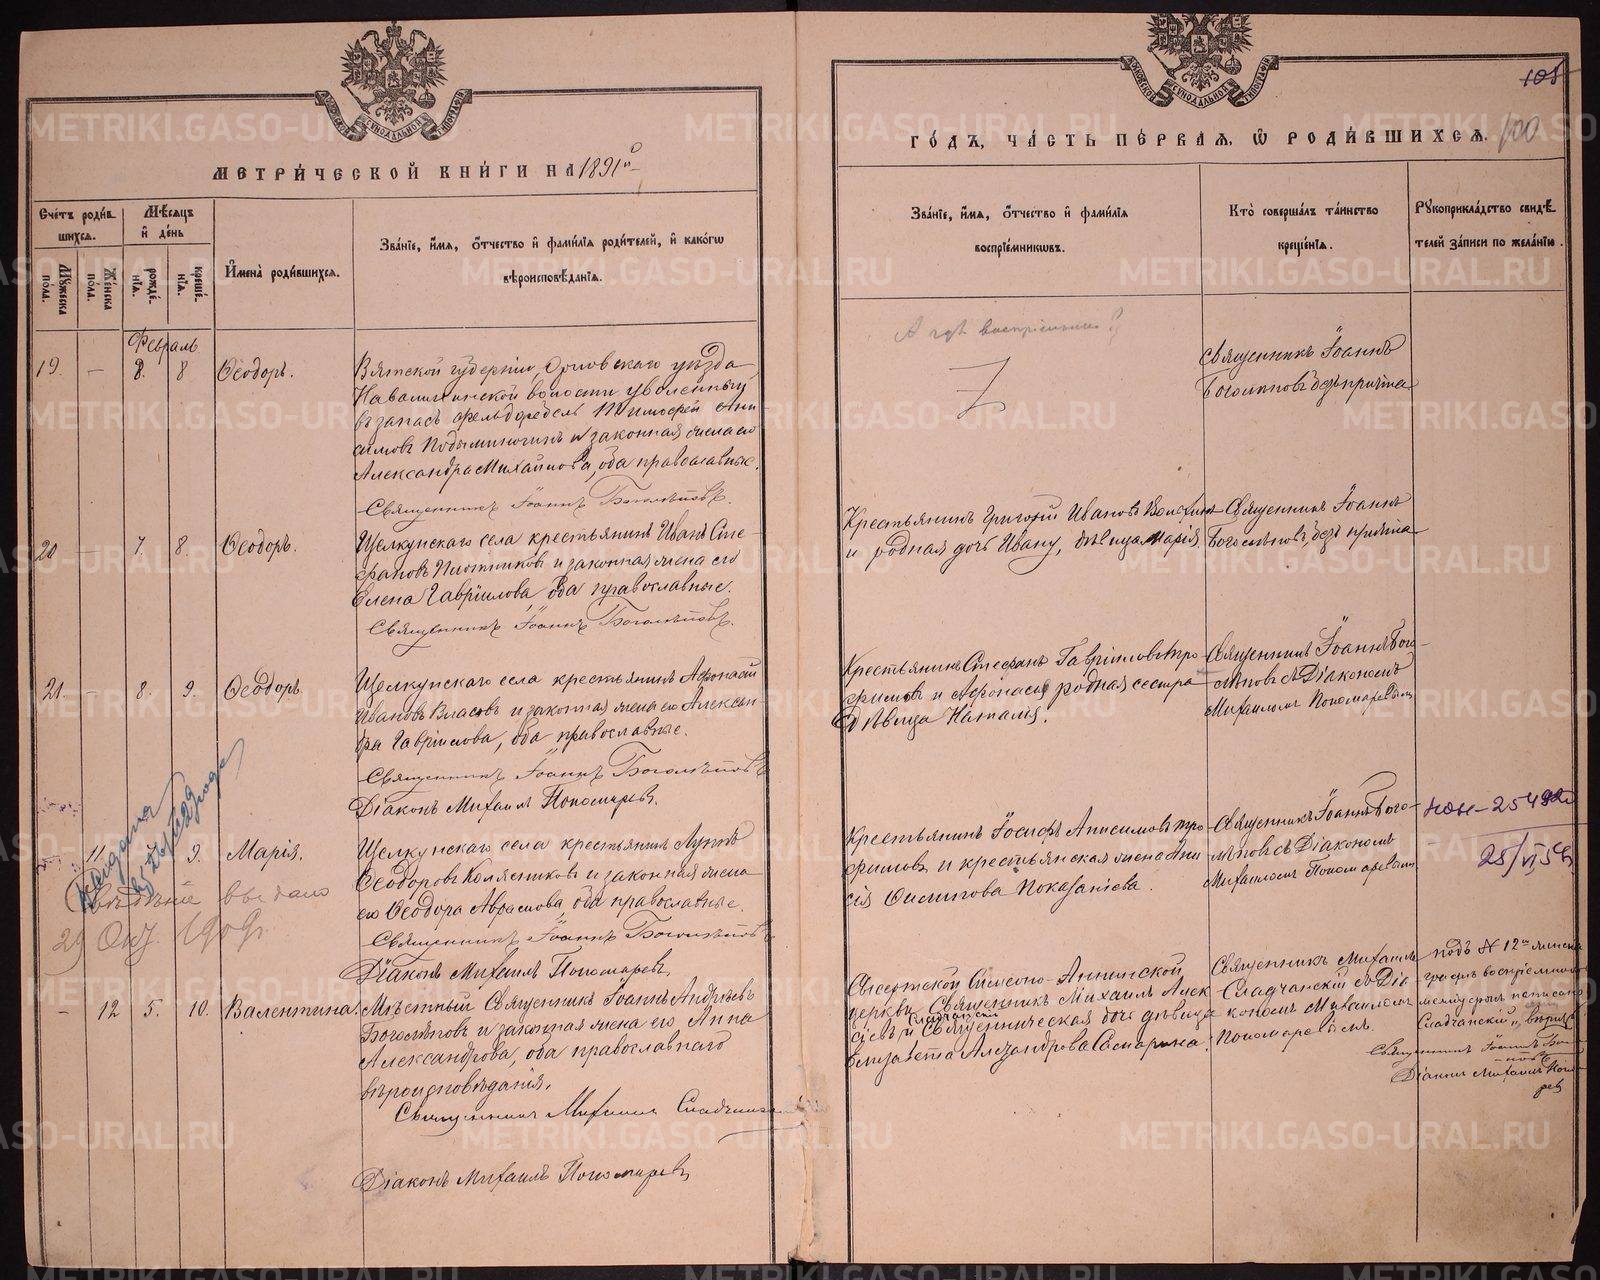 МЕТРИ́ЧЕСКОЙ КНИ́ГИ НА 1891й
Сче́тъ роди́в
шихся.
Мѣ́сяцъ
и҆ де́нь
Мꙋ́жеска
по́ла.
Же́нска
по́ла.
рожде́
нїѧ.
креще́
нїѧ.
И҆мена̀ роди́вшихсѧ.
Зва́нїе, и҆́мѧ, ѻ҆́тчество и҆ фами́лїѧ роди́телей, и҆ како́гѡ
вѣроисповѣ́данїѧ.
Февраль
19. — 8. 8 Ѳеодоръ.
Вятской губерніи, Орловскаго уѣзда
волости уволенный
въ запасъ фельдфебель Тимофей Они
симовъ и законная жена его
Александра Михайлова, оба православные.
Священникъ Іоаннъ Боголѣповъ.
20 — 7. 8. Ѳеодоръ.
Щелкунскаго села крестьянинъ Иванъ Сте-
фановъ Плотниковъ и законная жена его
Елена Гавріилова, оба православные.
Священникъ Іоаннъ Боголѣповъ.
21. — 8. 9. Ѳеодоръ
Щелкунскаго села крестьянинъ Афонасій
Ивановъ Власовъ и законная жена его Алексан
дра Гавріилова, оба православные.
Священникъ Іоаннъ Боголѣповъ
Діаконъ Михаилъ Пономаревъ.
11. 9. Марія.
Щелкунскаго села крестьянинъ Лукъ
Ѳеодоровъ Колясниковъ и законная жена
его Ѳеодора Аврамова, оба православные.
Священникъ Іоаннъ Боголѣповъ
Діаконъ Михаилъ Пономаревъ
выдано
29 Окт. 1909г.
— 12 5. 10. Валентина.
Мѣстный Священникъ Іоаннъ Андреевъ
Боголѣповъ и законная жена его Анна
Александрова, оба православнаго
вѣроисповѣданія.
Священникъ Михаилъ Сладчанскій
Діаконъ Михаилъ Пономаревъ
ГО́ДЪ, ЧА́СТЬ ПЕ́РВАѦ, Ѡ҆ РОДИ́ВШИХСѦ.
108
100
Зва́нїе, и҆́мѧ, ѻ҆́тчество и҆ фами́лїѧ
воспрїе́мникѡвъ.
Кто̀ соверша́лъ та́инство
креще́нїѧ.
Рꙋкоприкла́дство свидѣ́
телей за́писи по жела́нїю.
А гдѣ воспріемники?
Священникъ Іоаннъ
Боголѣповъ безъ причта
Крестьянинъ Григорій Ивановъ
и родная дочь Ивану, дѣвица Марія.
Священникъ Іоаннъ
Боголѣповъ, безъ причта
Крестьянинъ Стефанъ Гавріиловъ Тро
фимовъ и Афонасія родная сестра
дѣвица Наталія.
Священникъ Іоаннъ Бого-
лѣповъ съ Діакономъ
Михаиломъ Пономаревымъ
Крестьянинъ Іосифъ Анисимовъ Тро
фимовъ и крестьянская жена Ани
сія Показаніева.
Священникъ Іоаннъ Бого-
лѣповъ съ Діакономъ
Михаиломъ Пономаревымъ
25/VI 54
Сысертской Симеоно-Аннинской
церкви Священникъ Михаилъ Алек
сѣевъ Сладчанскій и Священническая дочь дѣвица
Елизавета Александрова
Священникъ Михаилъ
Сладчанскій съ Діа
кономъ Михаиломъ
Пономаревымъ.
подъ № 12мъ
графѣ воспріемниковъ
между строкъ написано
"Сладчанскій", вѣрно
Священникъ Іоаннъ Бого
лѣповъ
Діаконъ Михаилъ Пона
ревъ
METRIKI.GASO-URAL.RU